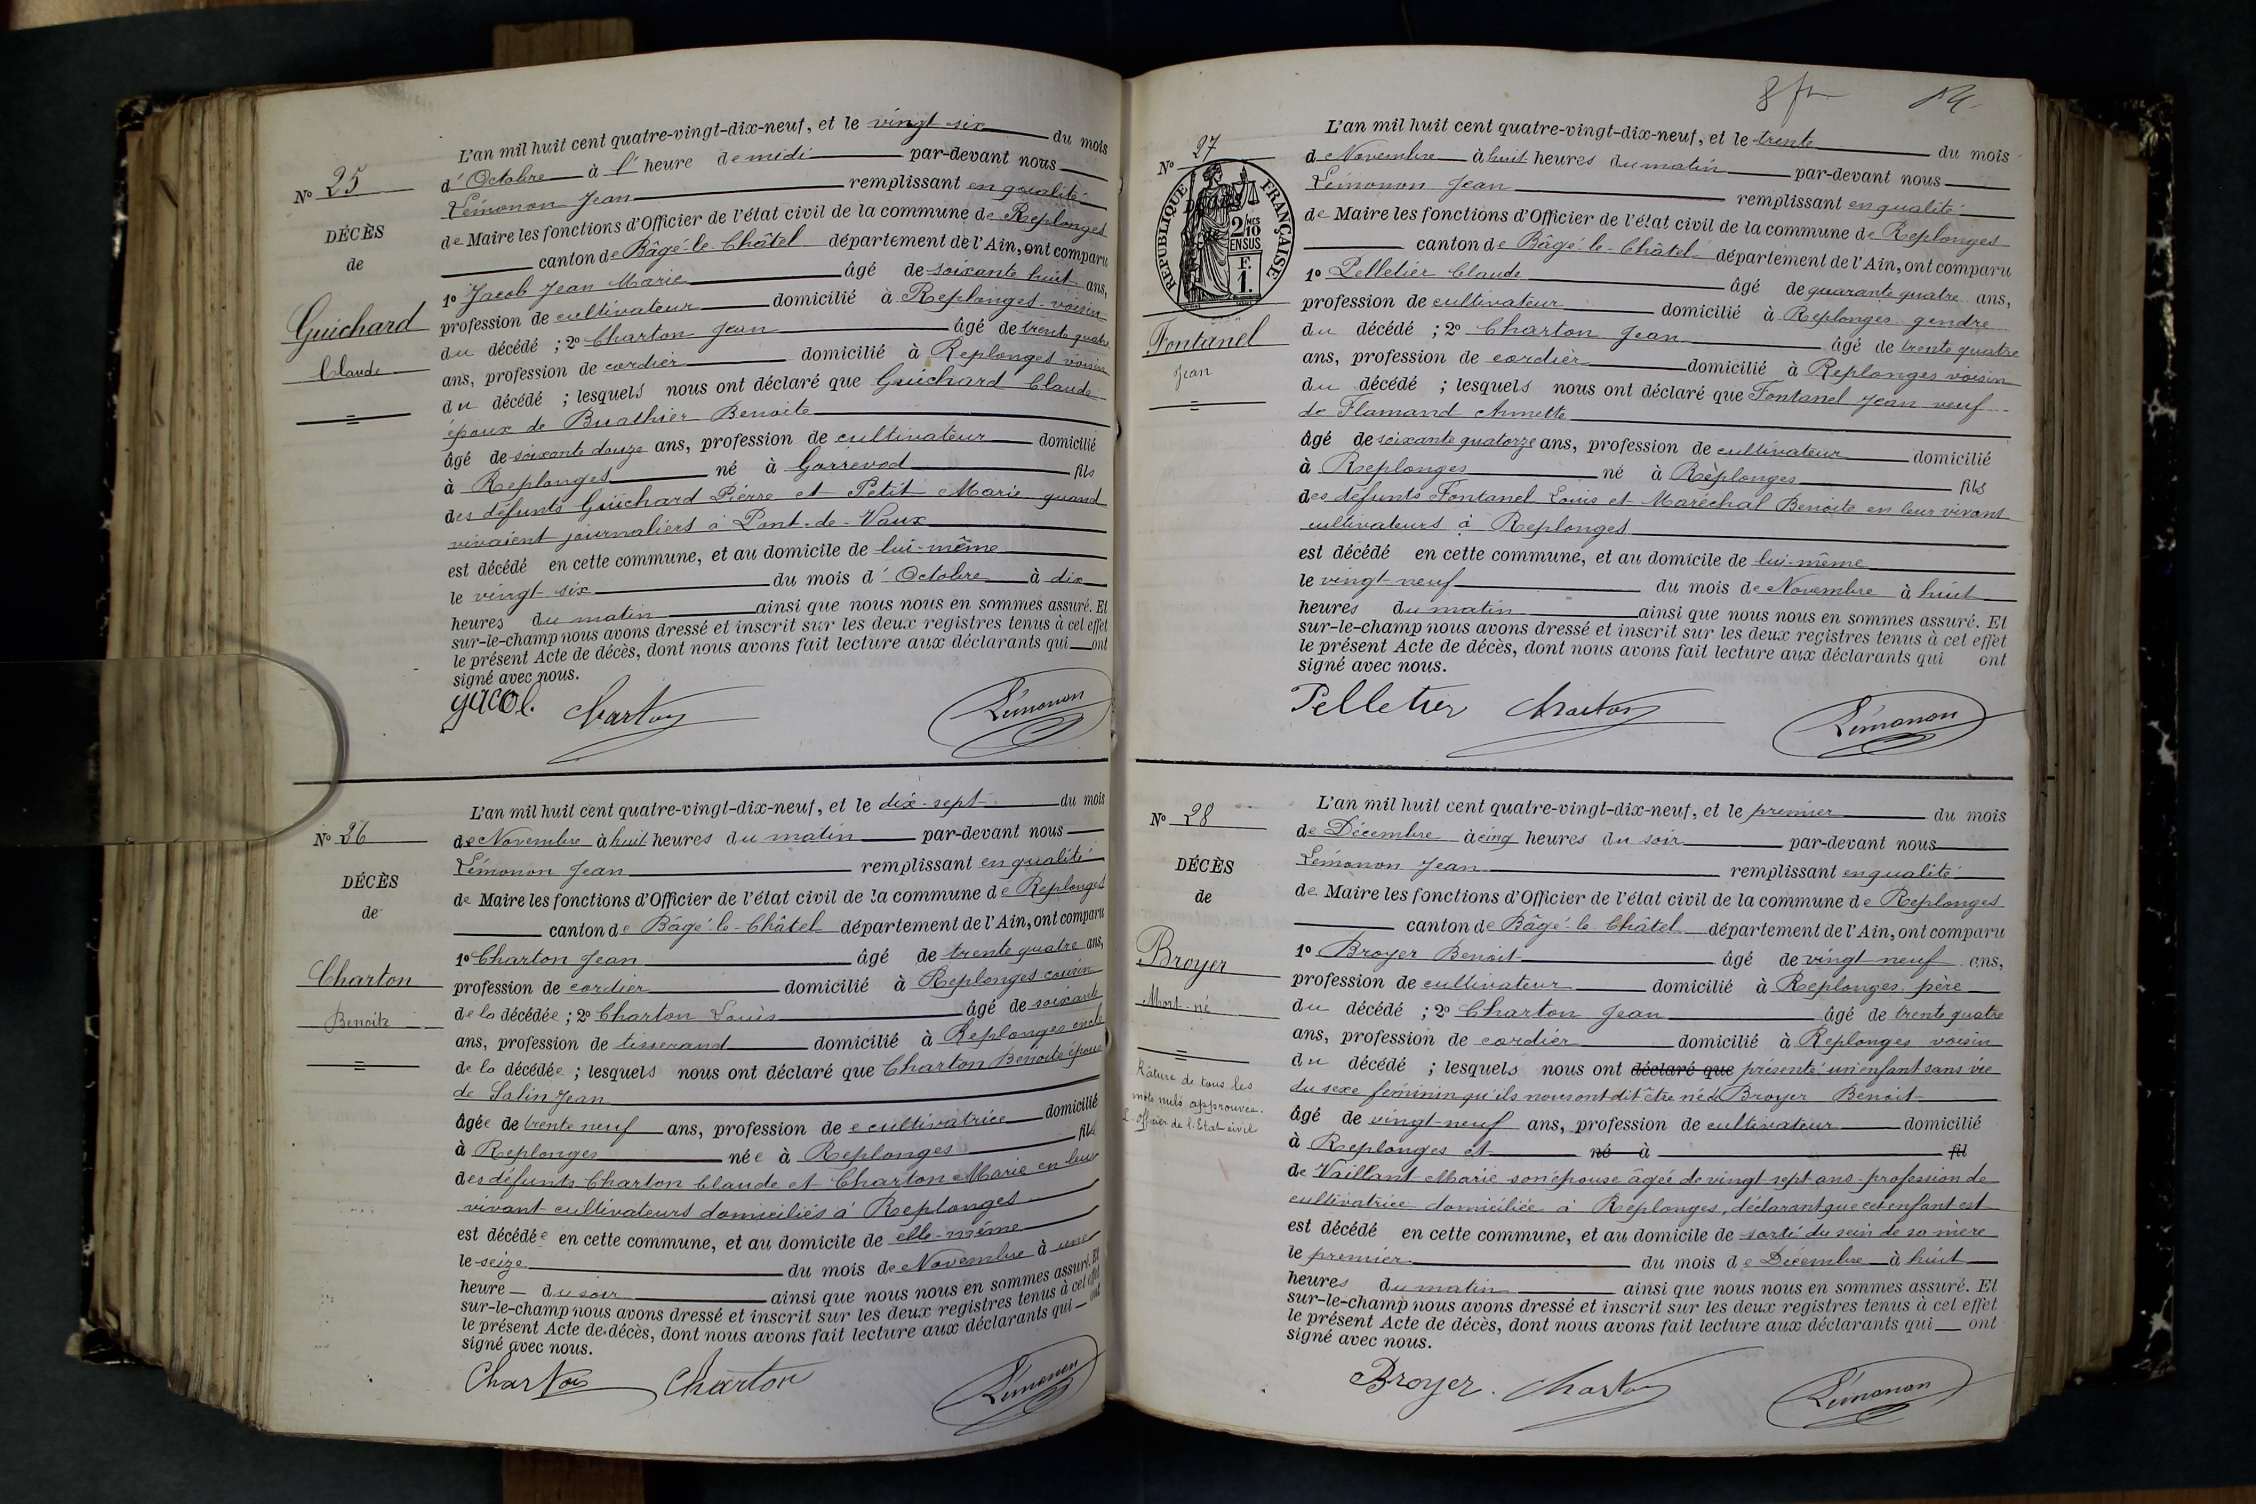 N° 25
DÉCÈS
de
Guichard
Claude
L'an mil huit cent quatre-vingt-dix-neuf, et le vingt six du mois
d'Octobre à l' heure de midi par-devant nous
Lémonon Jean remplissant en qualité
de Maire les fonctions d'Officier de l'état civil de la commune de Replonges
canton de Bâgé-le-Châtel département de l'Ain, ont comparu
1° Jacob Jean Marie âgé de soixante huit ans,
profession de cultivateur domicilié à Replonges voisin
du décédé ; 2° Charton Jean âgé de trente quatre
ans, profession de cordier domicilié à Replonges voisin
du décédé ; lesquels nous ont déclaré que Guichard Claude
époux de Buathier Benoite
âgé de soixante douze ans, profession de cultivateur domicilié
à Replonges né à Gorrevod fils
des défunts Guichard Pierre et Petit Marie quand
vivaient journaliers à Pont-de-Vaux
est décédé en cette commune, et au domicile de lui-même
le vingt-six du mois d'Octobre à dix
heures du matin ainsi que nous nous en sommes assuré. Et
sur-le-champ nous avons dressé et inscrit sur les deux registres tenus à cet effet
le présent Acte de décès, dont nous avons fait lecture aux déclarants qui ont
signé avec nous.
Jacob. Charton Lémonon
N° 26
DÉCÈS
de
Charton
Benoite
L'an mil huit cent quatre-vingt-dix-neuf, et le dix-sept du mois
de Novembre à huit heures du matin par-devant nous
Lémonon Jean remplissant en qualité
de Maire les fonctions d'Officier de l'état civil de la commune de Replonges
canton de Bâgé-le-Châtel département de l'Ain, ont comparu
1° Charton Jean âgé de trente quatre ans,
profession de cordier domicilié à Replonges cousin
de la décédée ; 2° Charton Louis âgé de soixante
ans, profession de tisserand domicilié à Replonges oncle
de la décédée ; lesquels nous ont déclaré que Charton Benoite épouse
de Salin Jean
âgée de trente neuf ans, profession de cultivatrice domicilié
à Replonges née à Replonges fils
des défunts Charton Claude et Charton Marie en leur
vivant cultivateurs domiciliés à Replonges
est décédée en cette commune, et au domicile de elle-même
le seize du mois de Novembre à une
heure du soir ainsi que nous nous en sommes assuré. Et
sur-le-champ nous avons dressé et inscrit sur les deux registres tenus à cet effet
le présent Acte de décès, dont nous avons fait lecture aux déclarants qui ont
signé avec nous.
Charton Charton Lémonon
8 fr
N° 27
RÉPUBLIQUE FRANÇAISE
2/10
EN SUS
F.
1.
Fontanel
Jean
L'an mil huit cent quatre-vingt-dix-neuf, et le trente du mois
de Novembre à huit heures du matin par-devant nous
Lémonon Jean remplissant en qualité
de Maire les fonctions d'Officier de l'état civil de la commune de Replonges
canton de Bâgé-le-Châtel département de l'Ain, ont comparu
1° Pelletier Claude âgé de quarante quatre ans,
profession de cultivateur domicilié à Replonges gendre
du décédé ; 2° Charton Jean âgé de trente quatre
ans, profession de cordier domicilié à Replonges voisin
du décédé ; lesquels nous ont déclaré que Fontanel Jean veuf
de Flamand Annette
âgé de soixante quatorze ans, profession de cultivateur domicilié
à Replonges né à Replonges fils
des défunts Fontanel Louis et Maréchal Benoite en leur vivant
cultivateurs à Replonges
est décédé en cette commune, et au domicile de lui-même
le vingt-neuf du mois de Novembre à huit
heures du matin ainsi que nous nous en sommes assuré. Et
sur-le-champ nous avons dressé et inscrit sur les deux registres tenus à cet effet
le présent Acte de décès, dont nous avons fait lecture aux déclarants qui ont
signé avec nous.
Pelletier Charton Lémonon
N° 28
DÉCÈS
de
Broyer
Mort-né
Râture de tous les
mots nuls approuvée.
L'officier de l'Etat civil
L'an mil huit cent quatre-vingt-dix-neuf, et le premier du mois
de Décembre à cinq heures du soir par-devant nous
Lémonon Jean remplissant en qualité
de Maire les fonctions d'Officier de l'état civil de la commune de Replonges
canton de Bâgé-le-Châtel département de l'Ain, ont comparu
1° Broyer Benoit âgé de vingt neuf ans,
profession de cultivateur domicilié à Replonges père
du décédé ; 2° Charton Jean âgé de trente quatre
ans, profession de cordier domicilié à Replonges voisin
du décédé ; lesquels nous ont déclaré que présenté un enfant sans vie
du sexe féminin qu'ils nous ont dit être né de Broyer Benoit
âgé de vingt-neuf ans, profession de cultivateur domicilié
à Replonges et né à fil
de Vaillant Marie son épouse âgée de vingt sept ans profession de
cultivatrice domiciliée à Replonges, déclarant que cet enfant est
est décédé en cette commune, et au domicile de sorti du sein de sa mère
le premier du mois de Décembre à huit
heures du matin ainsi que nous nous en sommes assuré. Et
sur-le-champ nous avons dressé et inscrit sur les deux registres tenus à cet effet
le présent Acte de décès, dont nous avons fait lecture aux déclarants qui ont
signé avec nous.
Broyer. Charton Lémonon